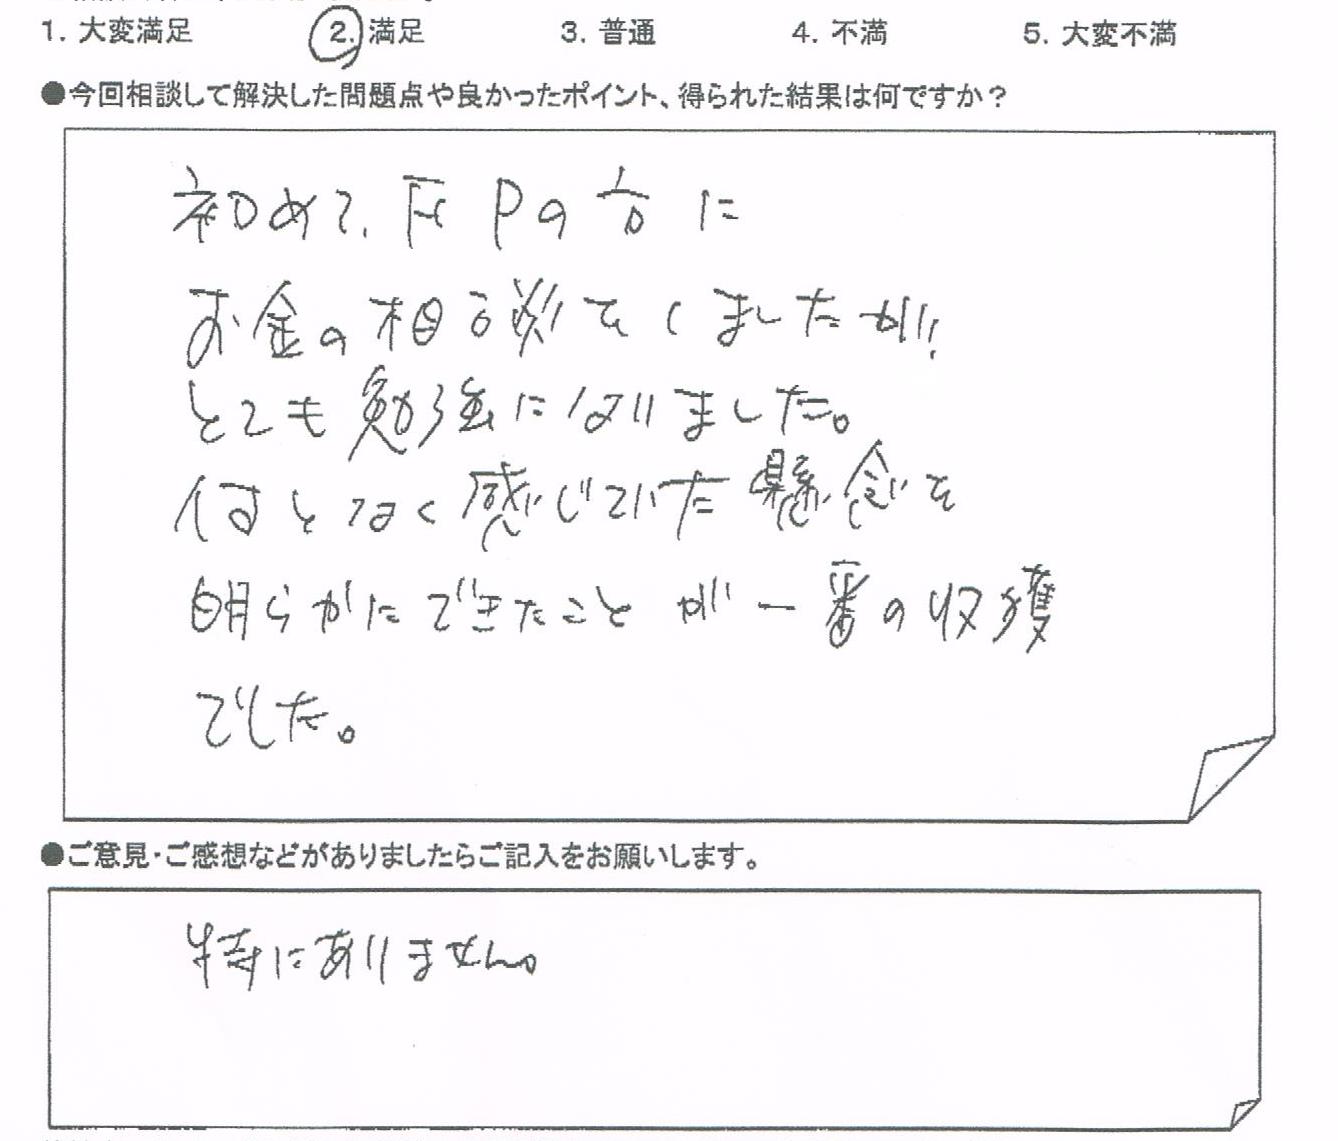 1. 大変満足 2. 満足 3. 普通 4. 不満 5. 大変不満
●今回相談して解決した問題点や良かったポイント、得られた結果は何ですか？
初めて、FPの方に
お金の相談をしましたが、
とても勉強になりました。
何となく感じていた懸念を
明らかにできたことが一番の収獲
でした。
●ご意見・ご感想などがありましたらご記入をお願いします。
特にありません。